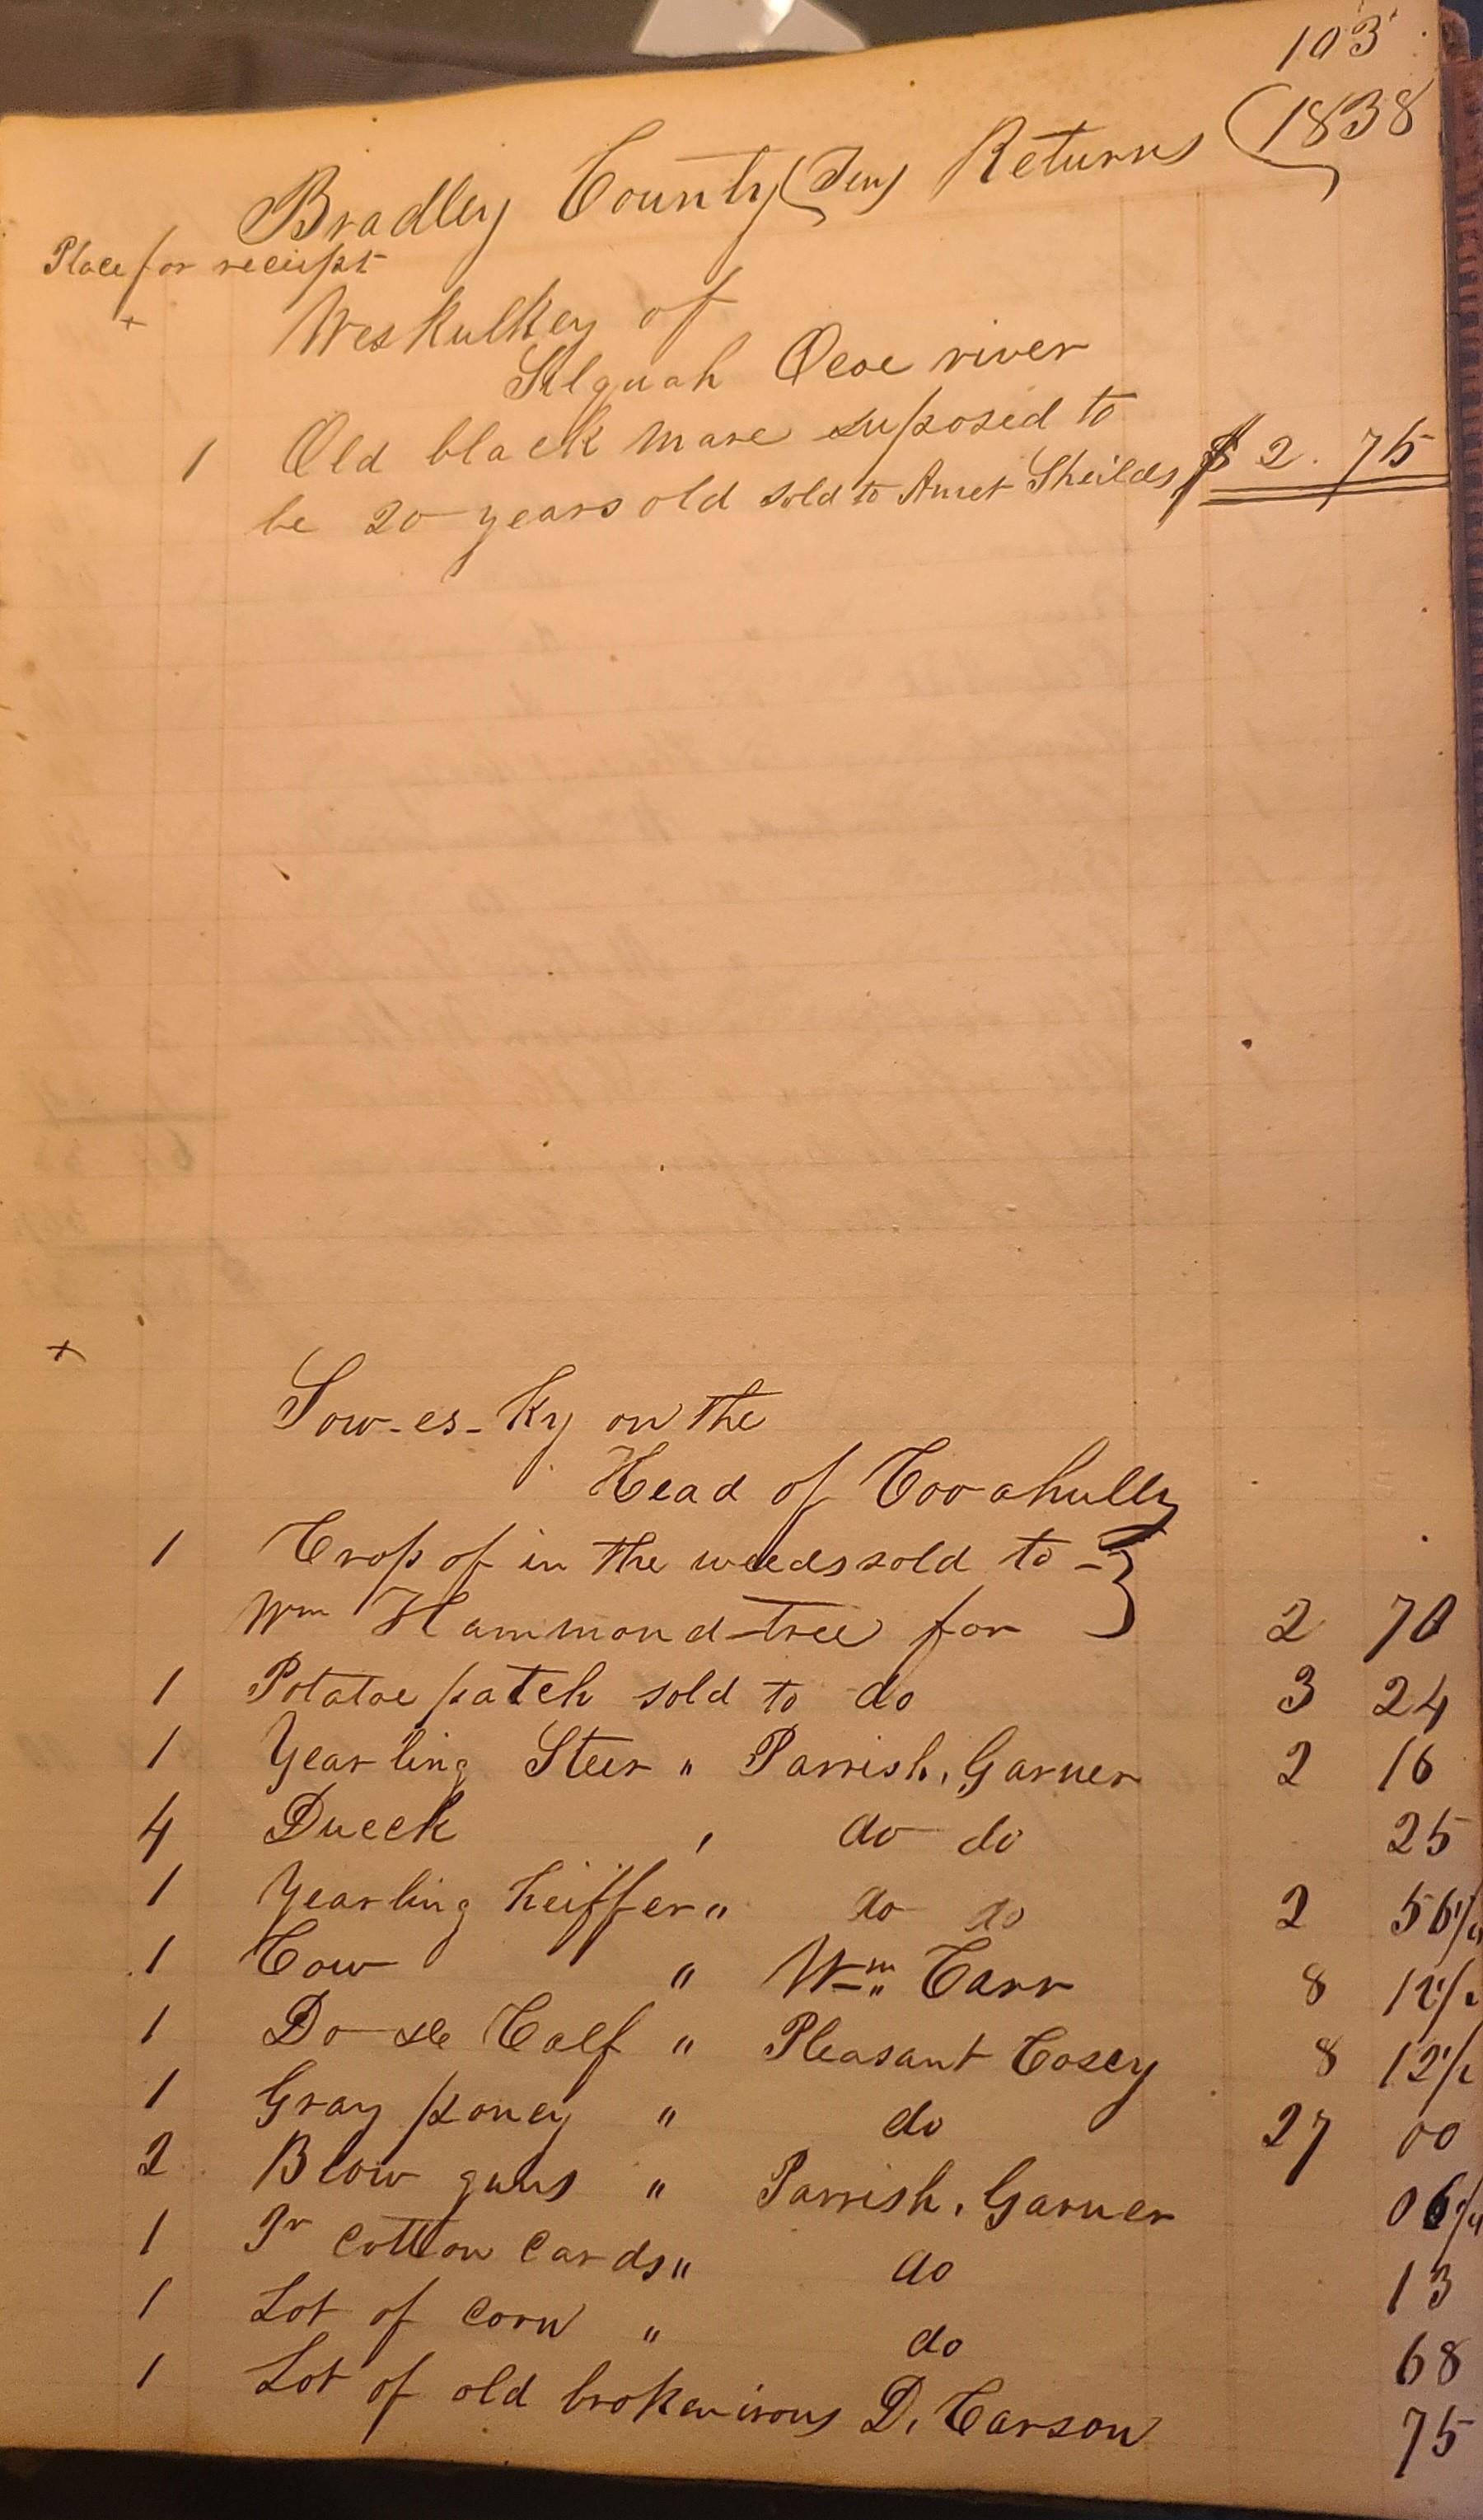 103
Bradley County (Ten) Returns (1838
Place for receipt
+ Weskulkey of
Selquah Ocoe river
1 Old black mare suposed to
be 20 years old sold to Amet Sheilds $ 2. 75
+
Sow-es-Ky on the
Head of Cooahully
1 Crop of in the weeds sold to
Wm Hammondtree for 2 70
1 Potatoe patch sold to do 3 24
1 Yearling Steer " Parrish, Garner 2 16
4 Dueck " do do 25
1 Yearling heiffer " do do 2 56 1/4
1 Cow " Wm Carr 8 12 1/2
1 Do & Calf " Pleasant Casey 8 12 1/2
1 Gray poney " do 27 00
2 Blow guns " Parrish, Garner 06 1/4
1 Pr Cotton Cards " do 13
1 Lot of corn " do 68
1 Lot of old broken irons D. Carson 75